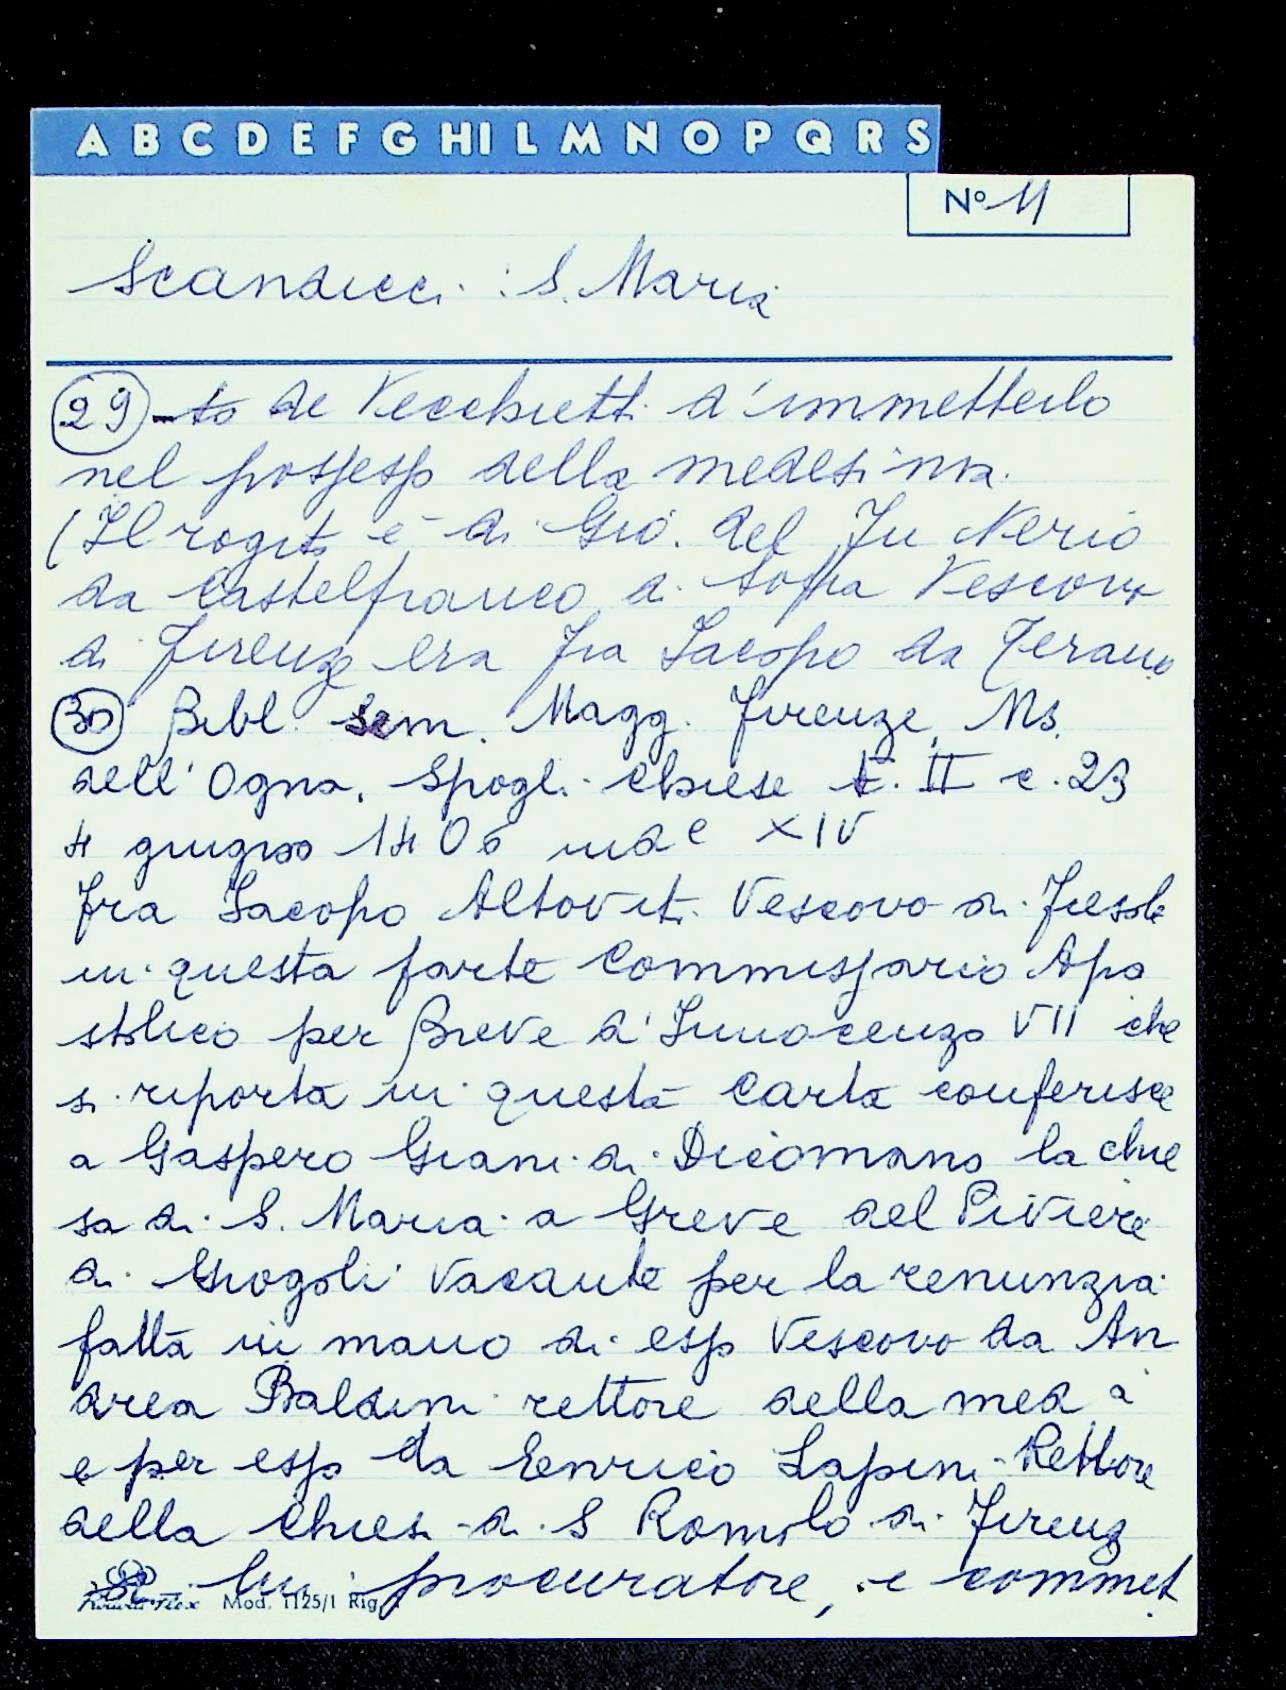 A B C D E F G H I L M N O P Q R S
N° 11
Scandicci : S. Maria
29 - to de Vecchietti d'immetterlo
nel possesso della medesima.
(Il rogito è di Gio. del fu Nerio
da Castelfranco di Sopra Vescovo
di Firenze era Fra Iacopo da Teramo
30 Bibl. Sem. Magg. Firenze, Ms.
dell'Ogna, Spogli Chiese t. II c. 23
4 giugno 1406 indᵉ XIV
Fra Iacopo Altoviti Vescovo di Fiesole
in questa parte Commissario Apo
stolico per Breve d'Innocenzo VII che
si riporta in questa Carta conferisce
a Gaspero Giani di Dicomano la chie
sa di S. Maria a Greve del Piviere
di Giogoli vacante per la renunzia
fatta in mano di esso Vescovo da An
drea Baldini rettore della medᵃ
e per esso da Enrico Lapini Rettore
della Chiesa di S Romolo di Firenze
di lui procuratore, e commet
Mod. 1125/1 Rig.